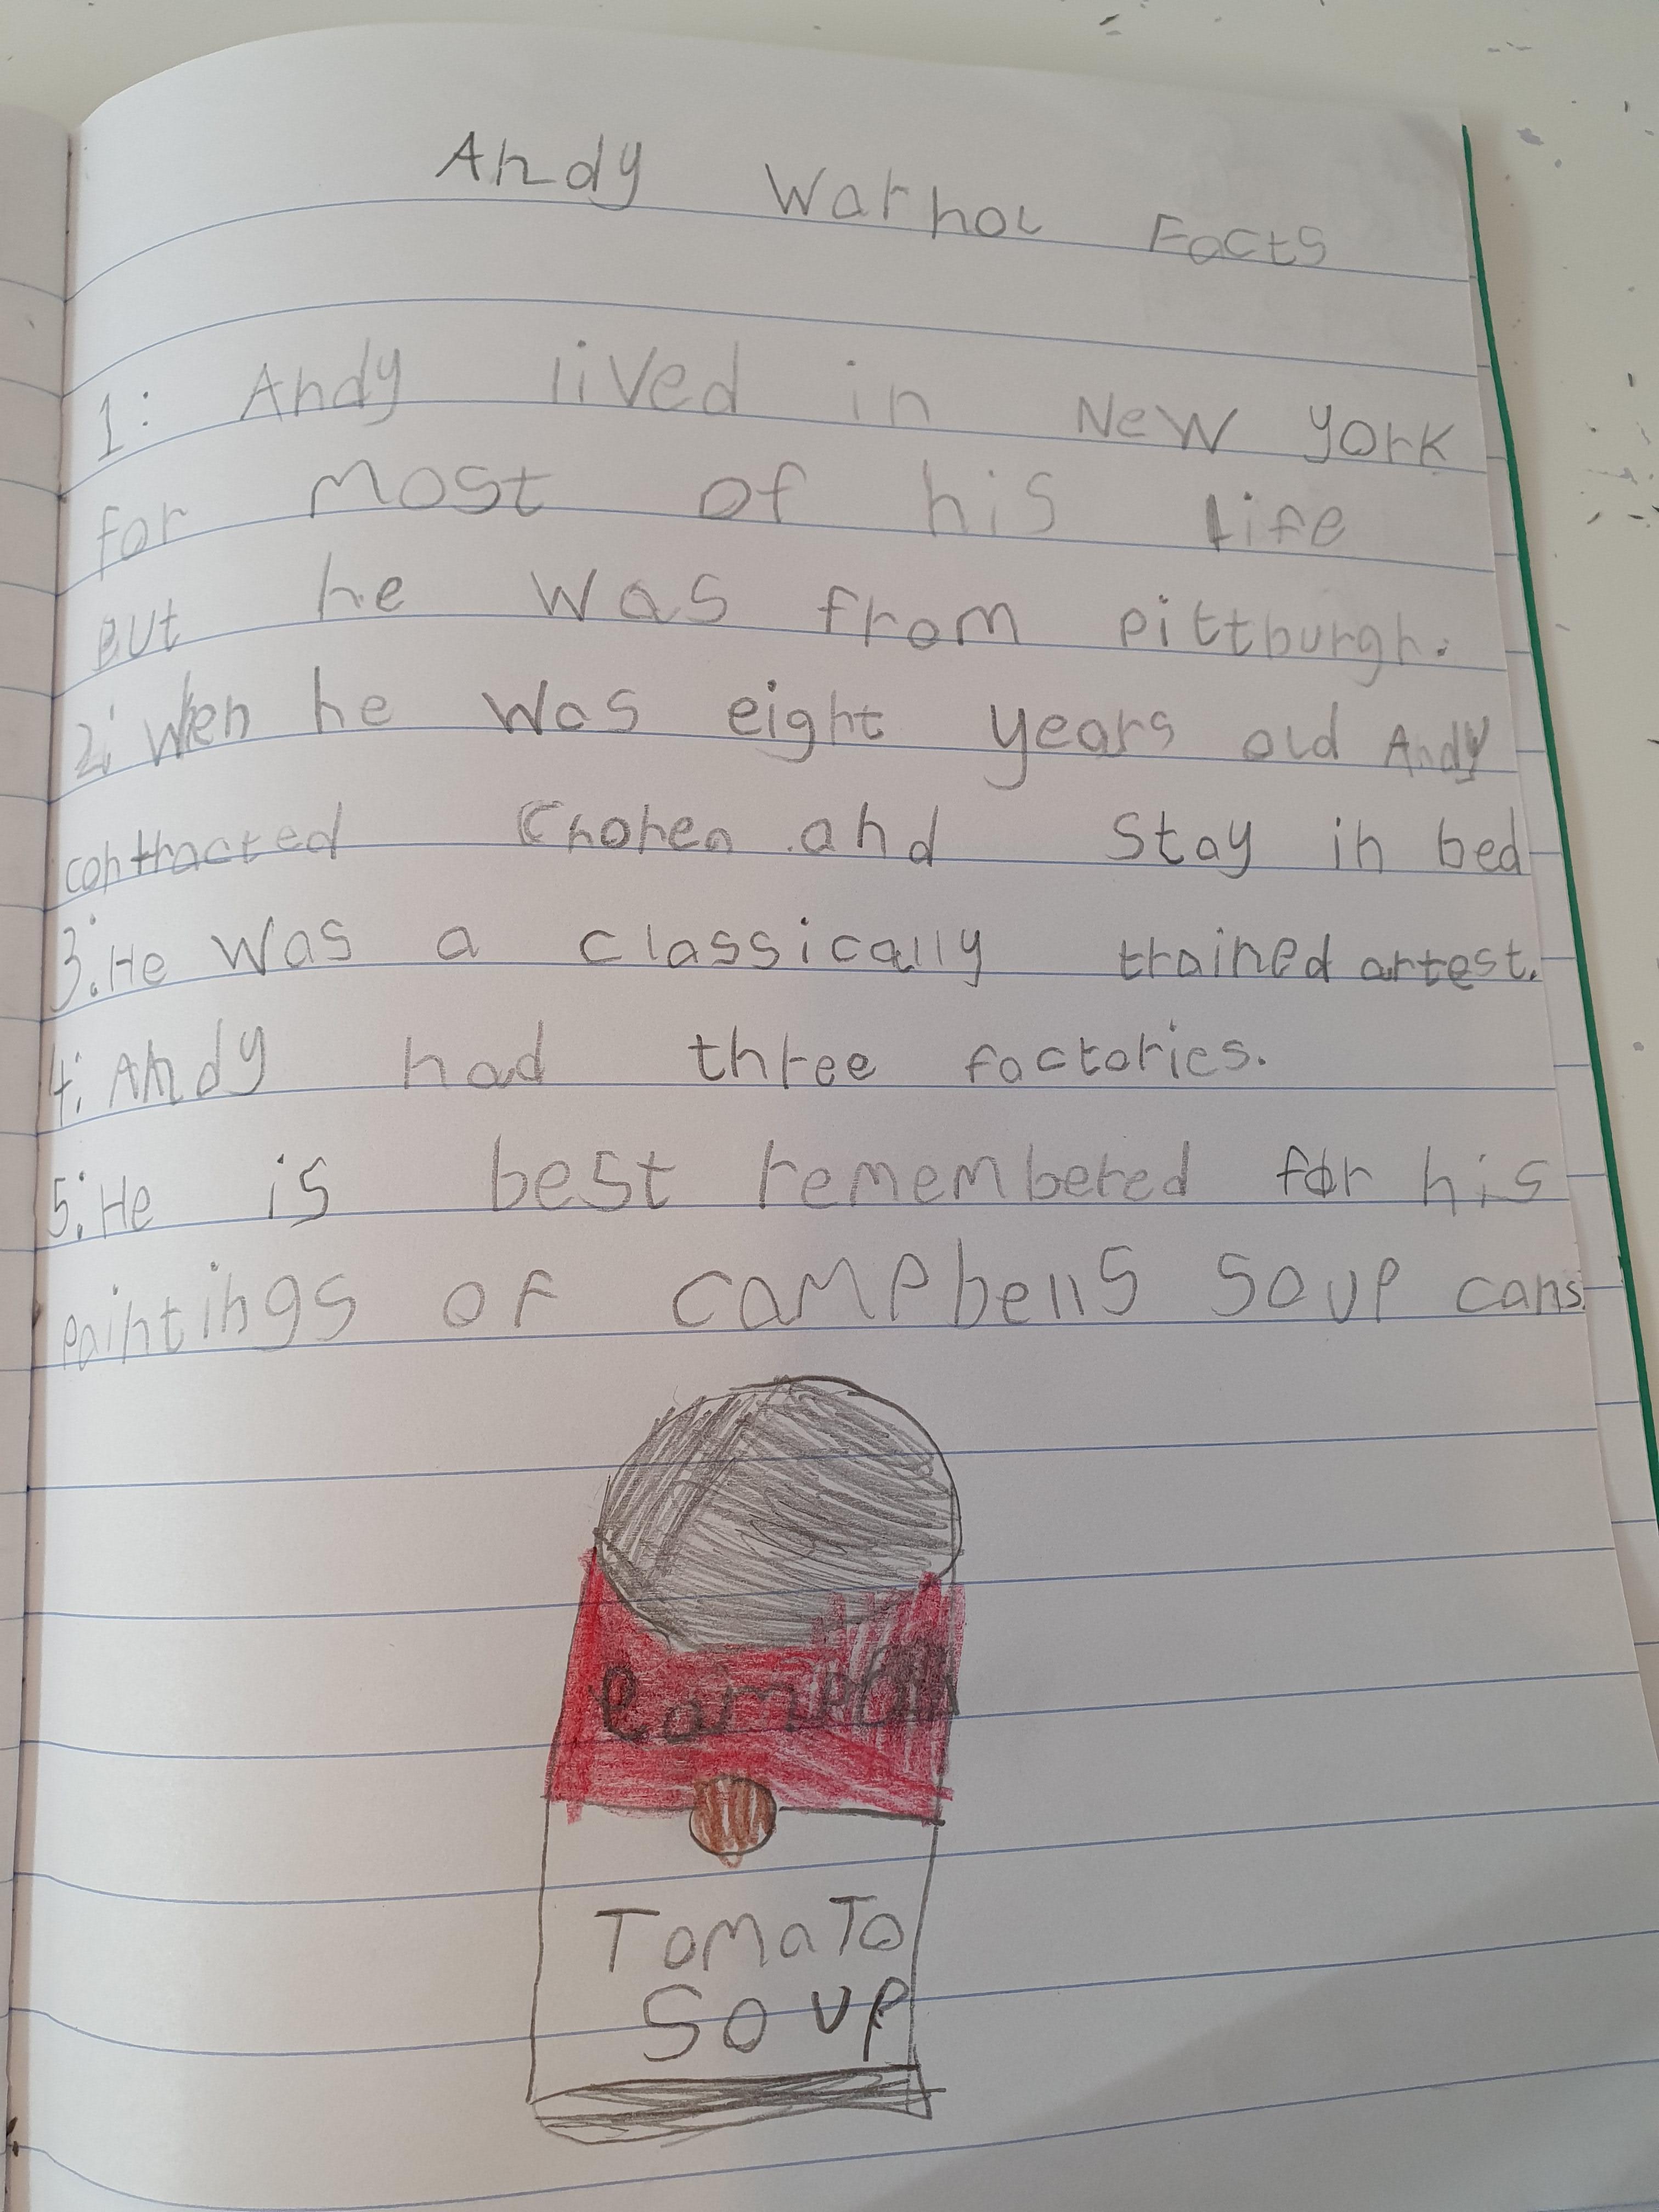 Andy Warhol Facts
1: Andy lived in New york
for most of his life
But he was from pittburgh.
2: When he was eight years old Andy
contracted Chorea and stay in bed
3: He was a classically trained artest.
4: Andy had three factories.
5: He is best remembered for his
paintings of campbells soup cans
Tomato
Soup